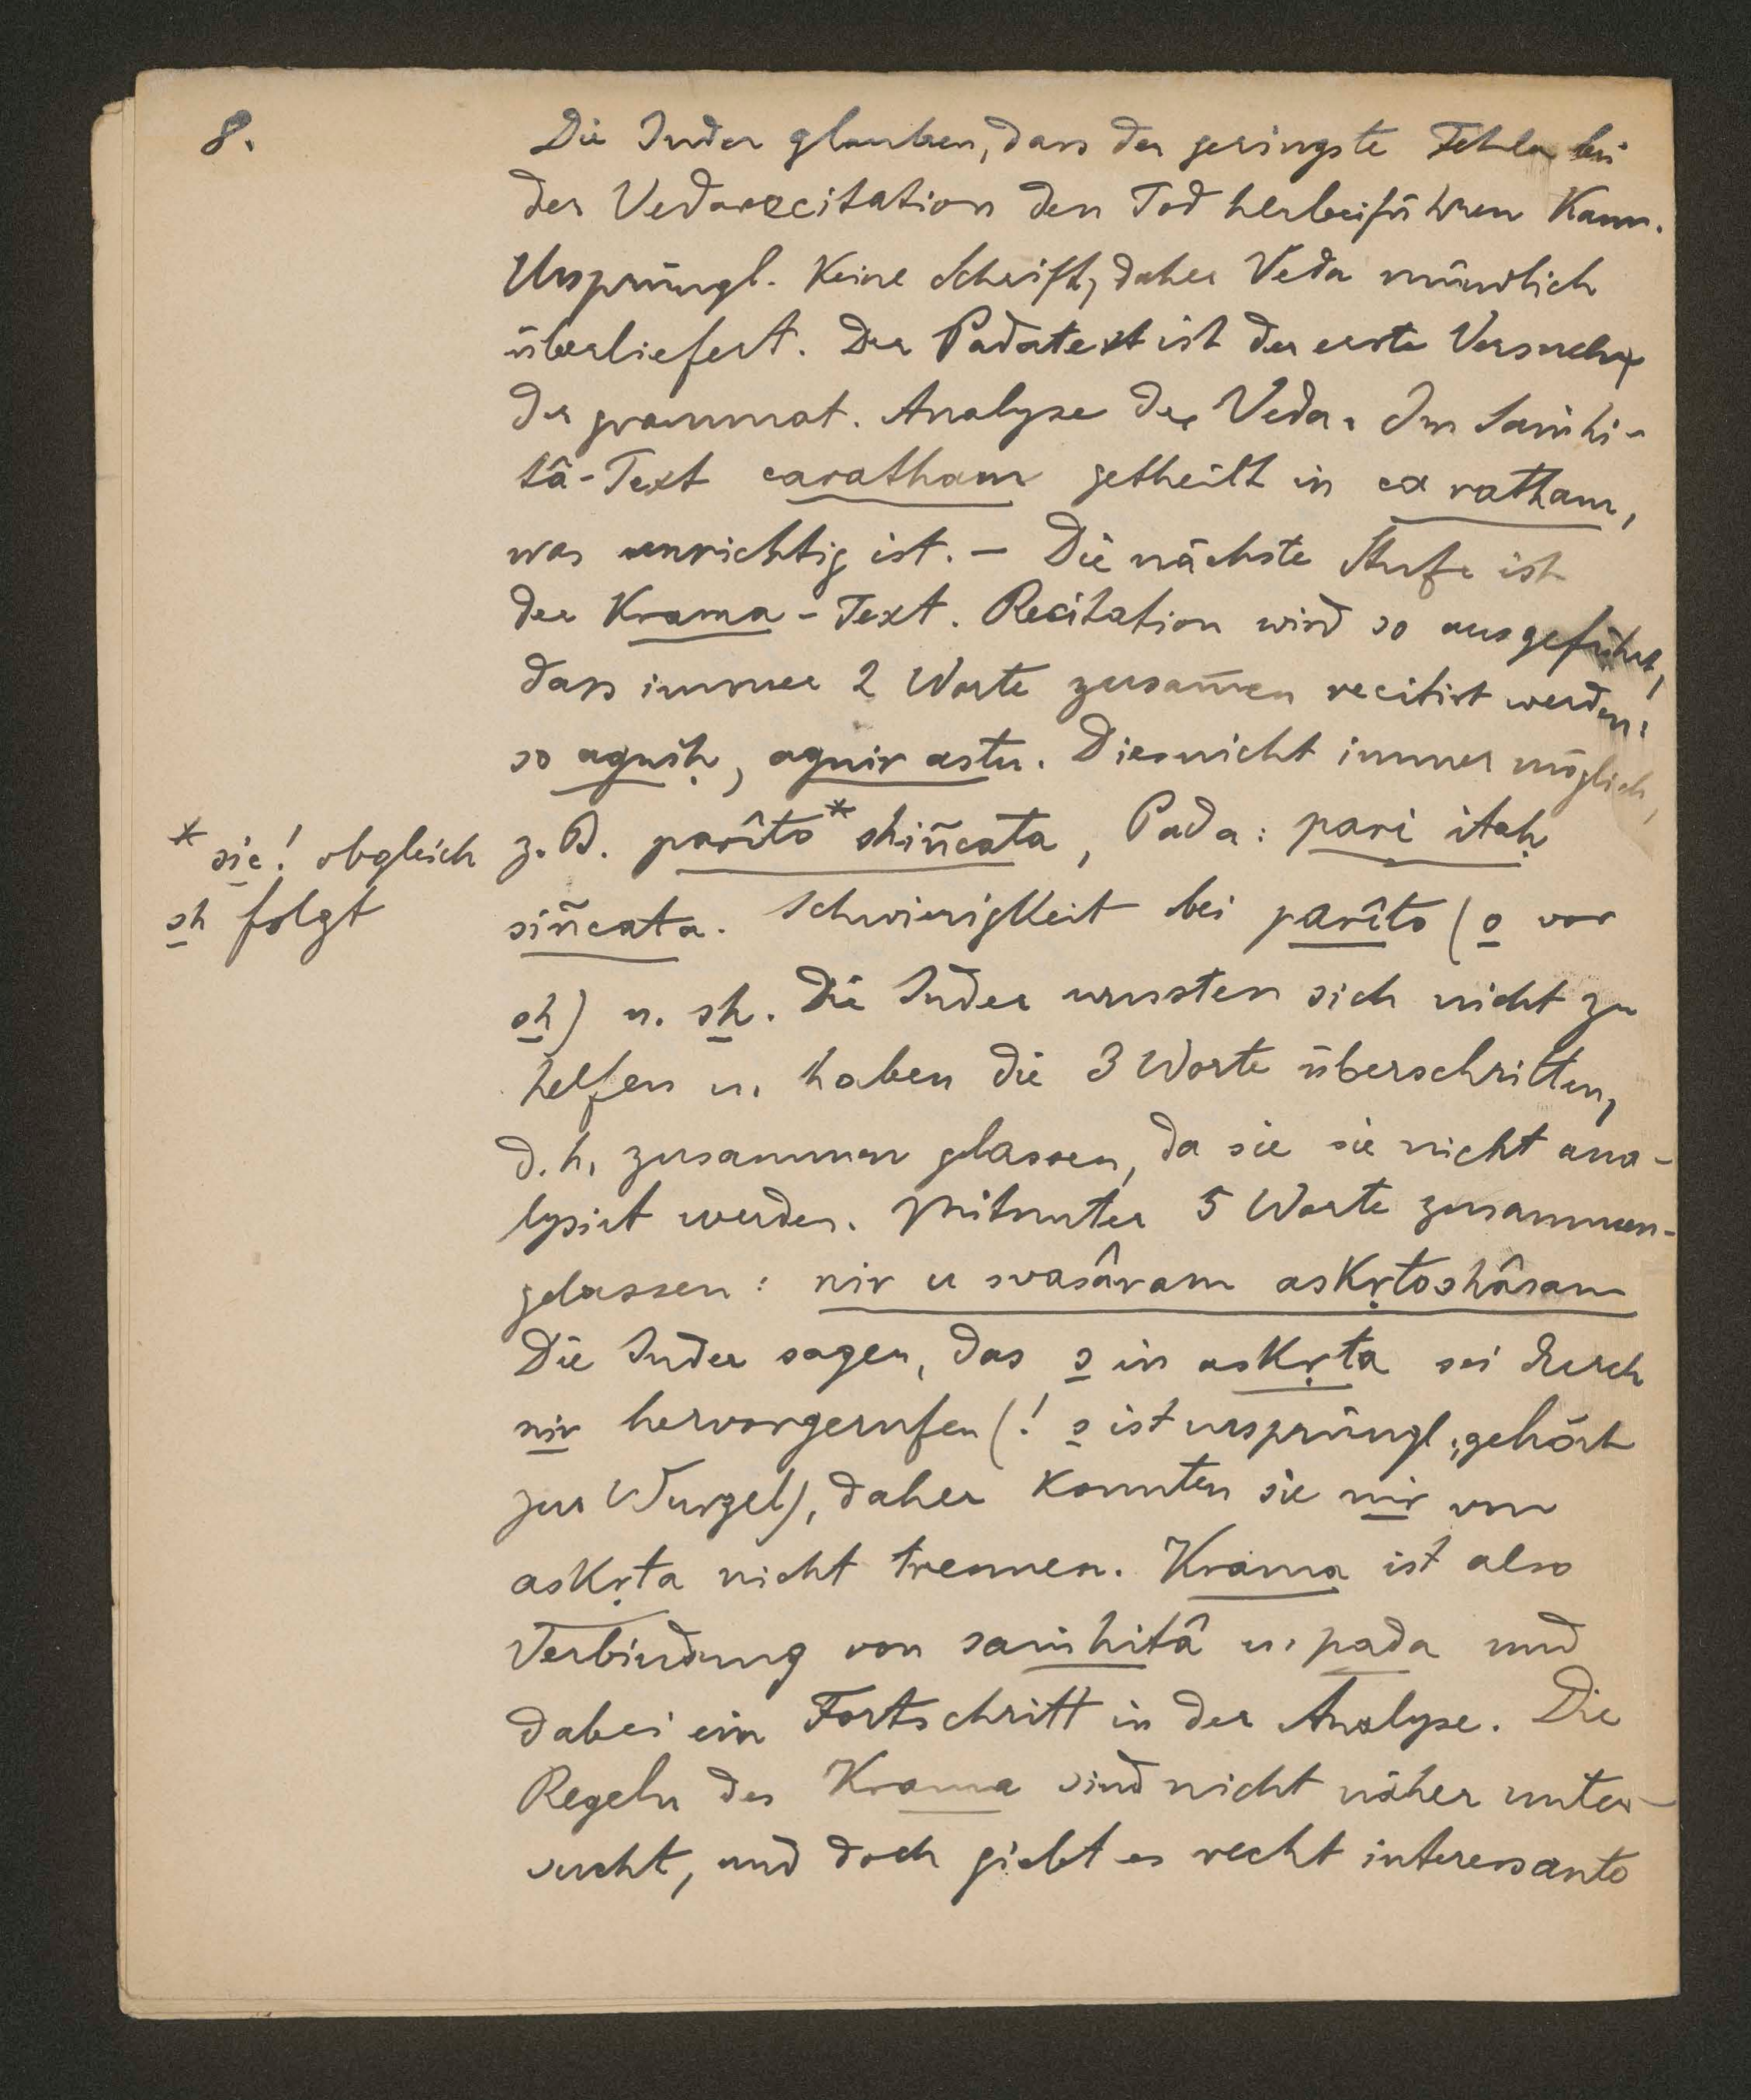 8.
Die Inder glauben, dass der geringste Fehler bei
der Vedarecitation den Tod herbeiführen kann.
Ursprüngl. keine Schrift, daher Veda mündlich
überliefert. Der Padatext ist der erste Versuch
der grammat. Analyse der Veda. Im Saṁhi-
tâ-Text caratham getheilt in ca ratham,
was unrichtig ist. – Die nächste Stufe ist
der Krama-Text. Recitation wird so ausgeführt,
dass immer 2 Worte zusam̄en recitirt werden:
so agniḥ, agnir astu. Dies nicht immer möglich,
z. B. parîto* shiñcata, Pada: pari itaḥ
* sic! obgleich
sh folgt
siñcata. Schwierigkeit bei parîto (o vor
sh) u. sh. Die Inder wussten sich nicht zu
helfen u. haben die 3 Worte überschritten,
d. h. zusammen glassen, da sie sie nicht ana-
lysirt werden. Mitunter 5 Worte zusammen-
gelassen: nir u svasâram askṛtoshâsam
Die Inder sagen, das s in askṛta sei durch
nir hervorgerufen (! s ist ursprüngl., gehört
zur Wurzel), daher konnten sie nir von
askṛta nicht trennen. Krama ist also
Verbindung von saṁhitâ u. pada und
dabei ein Fortschritt in der Analyse. Die
Regeln des Krama sind nicht näher unter-
sucht, und doch giebt es recht interessante